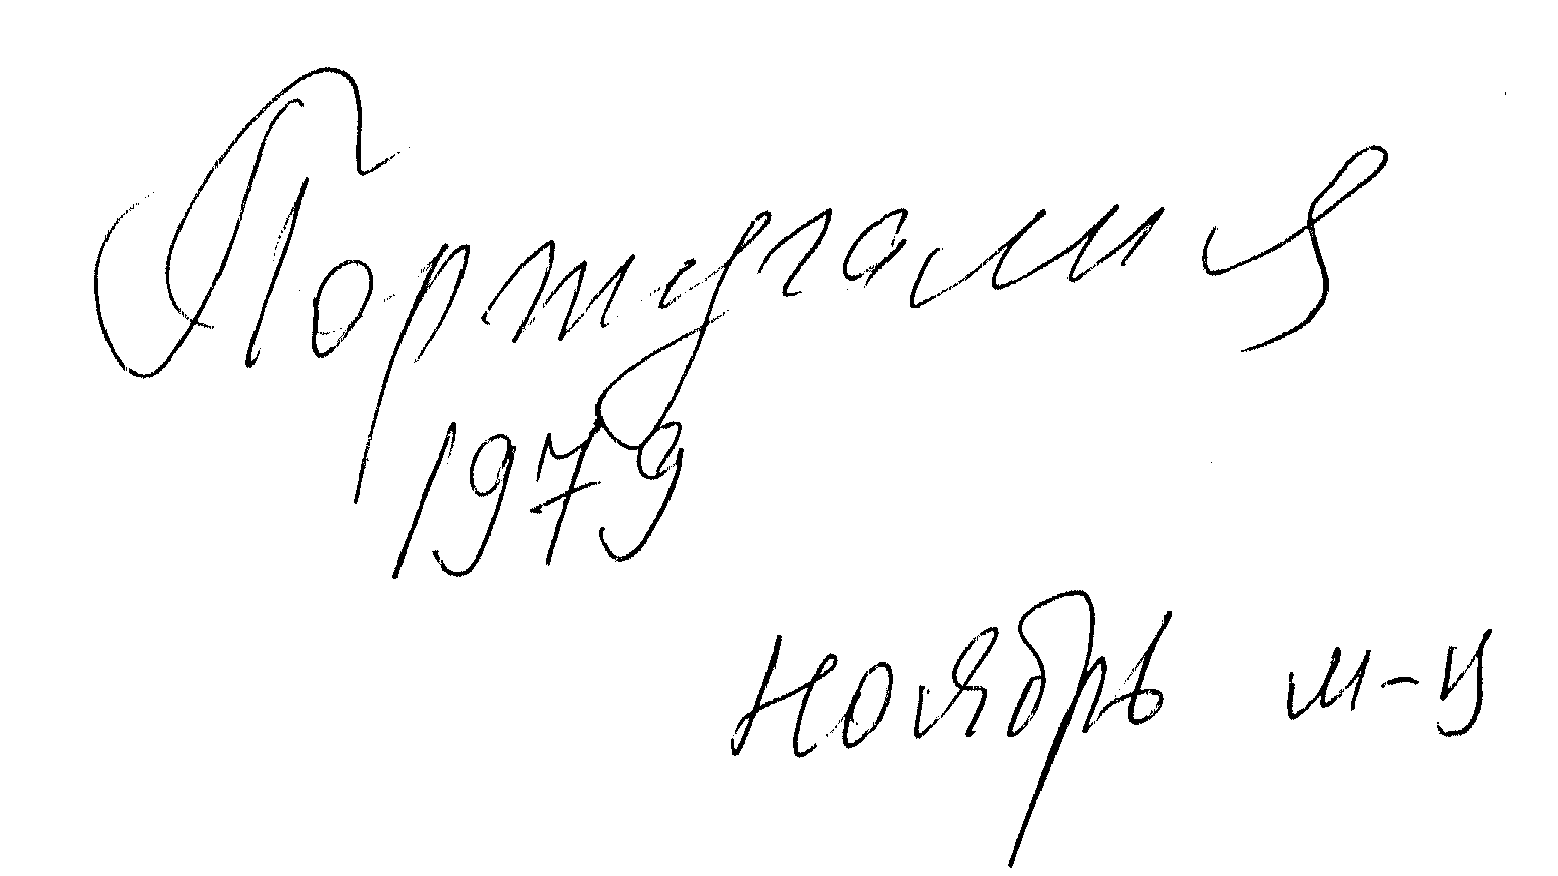 Португалия
1979
ноябрь м-ц